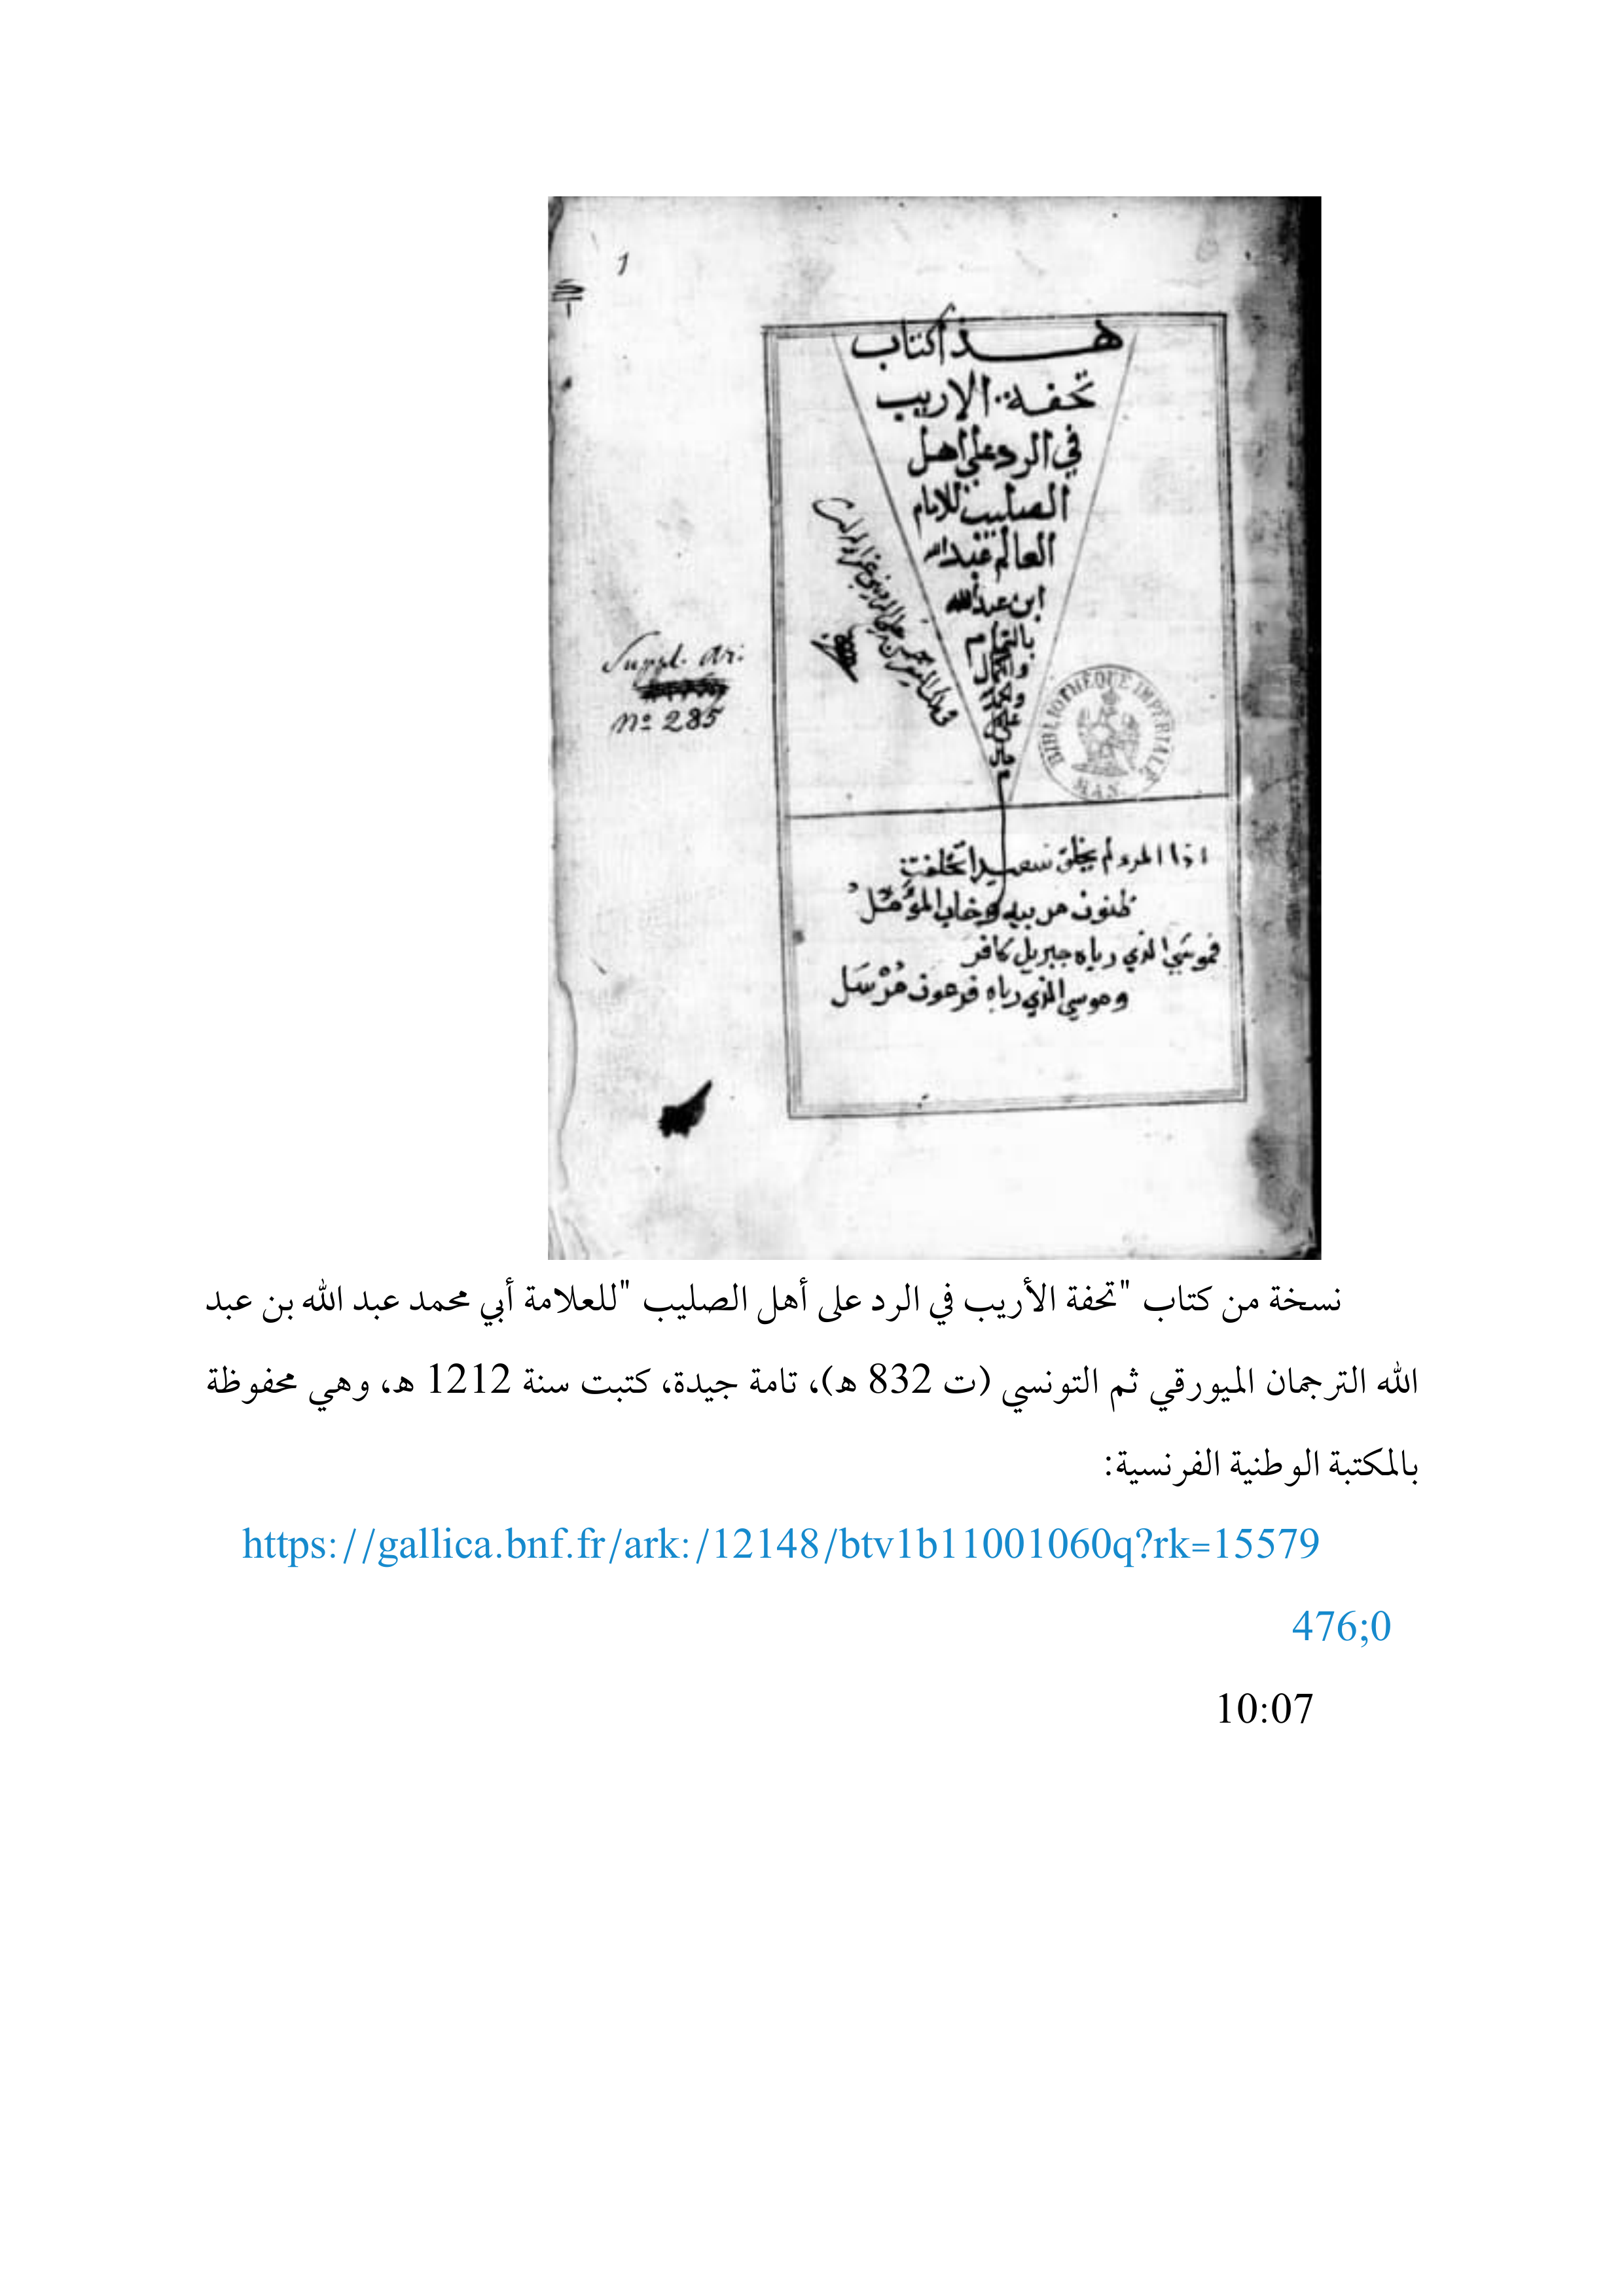 1
هذا كتاب
تحفة الاريب
في الرد علي اهل
الصليب للامام
العالم عبد الله
ابن عبد الله
بالتمام
والكمال
والحمد لله
على
حال
Suppl. Ar:
nº 285
BIBLIOTHÈQUE IMPÉRIALE
MAN.
اذا المرء لم يخلق سعيدا تخلفت
ظنون مربيه وخاب المؤَمّلُ
فموسَي الذي رباه جبريل كافر
وموسي الذي رباه فرعون مُرْسَل
نسخة من كتاب "تحفة الأريب في الرد على أهل الصليب "للعلامة أبي محمد عبد الله بن عبد
الله الترجمان الميورقي ثم التونسي (ت 832 ه)، تامة جيدة، كتبت سنة 1212 ه، وهي محفوظة
بالمكتبة الوطنية الفرنسية:
https://gallica.bnf.fr/ark:/12148/btv1b11001060q?rk=15579
476;0
10:07